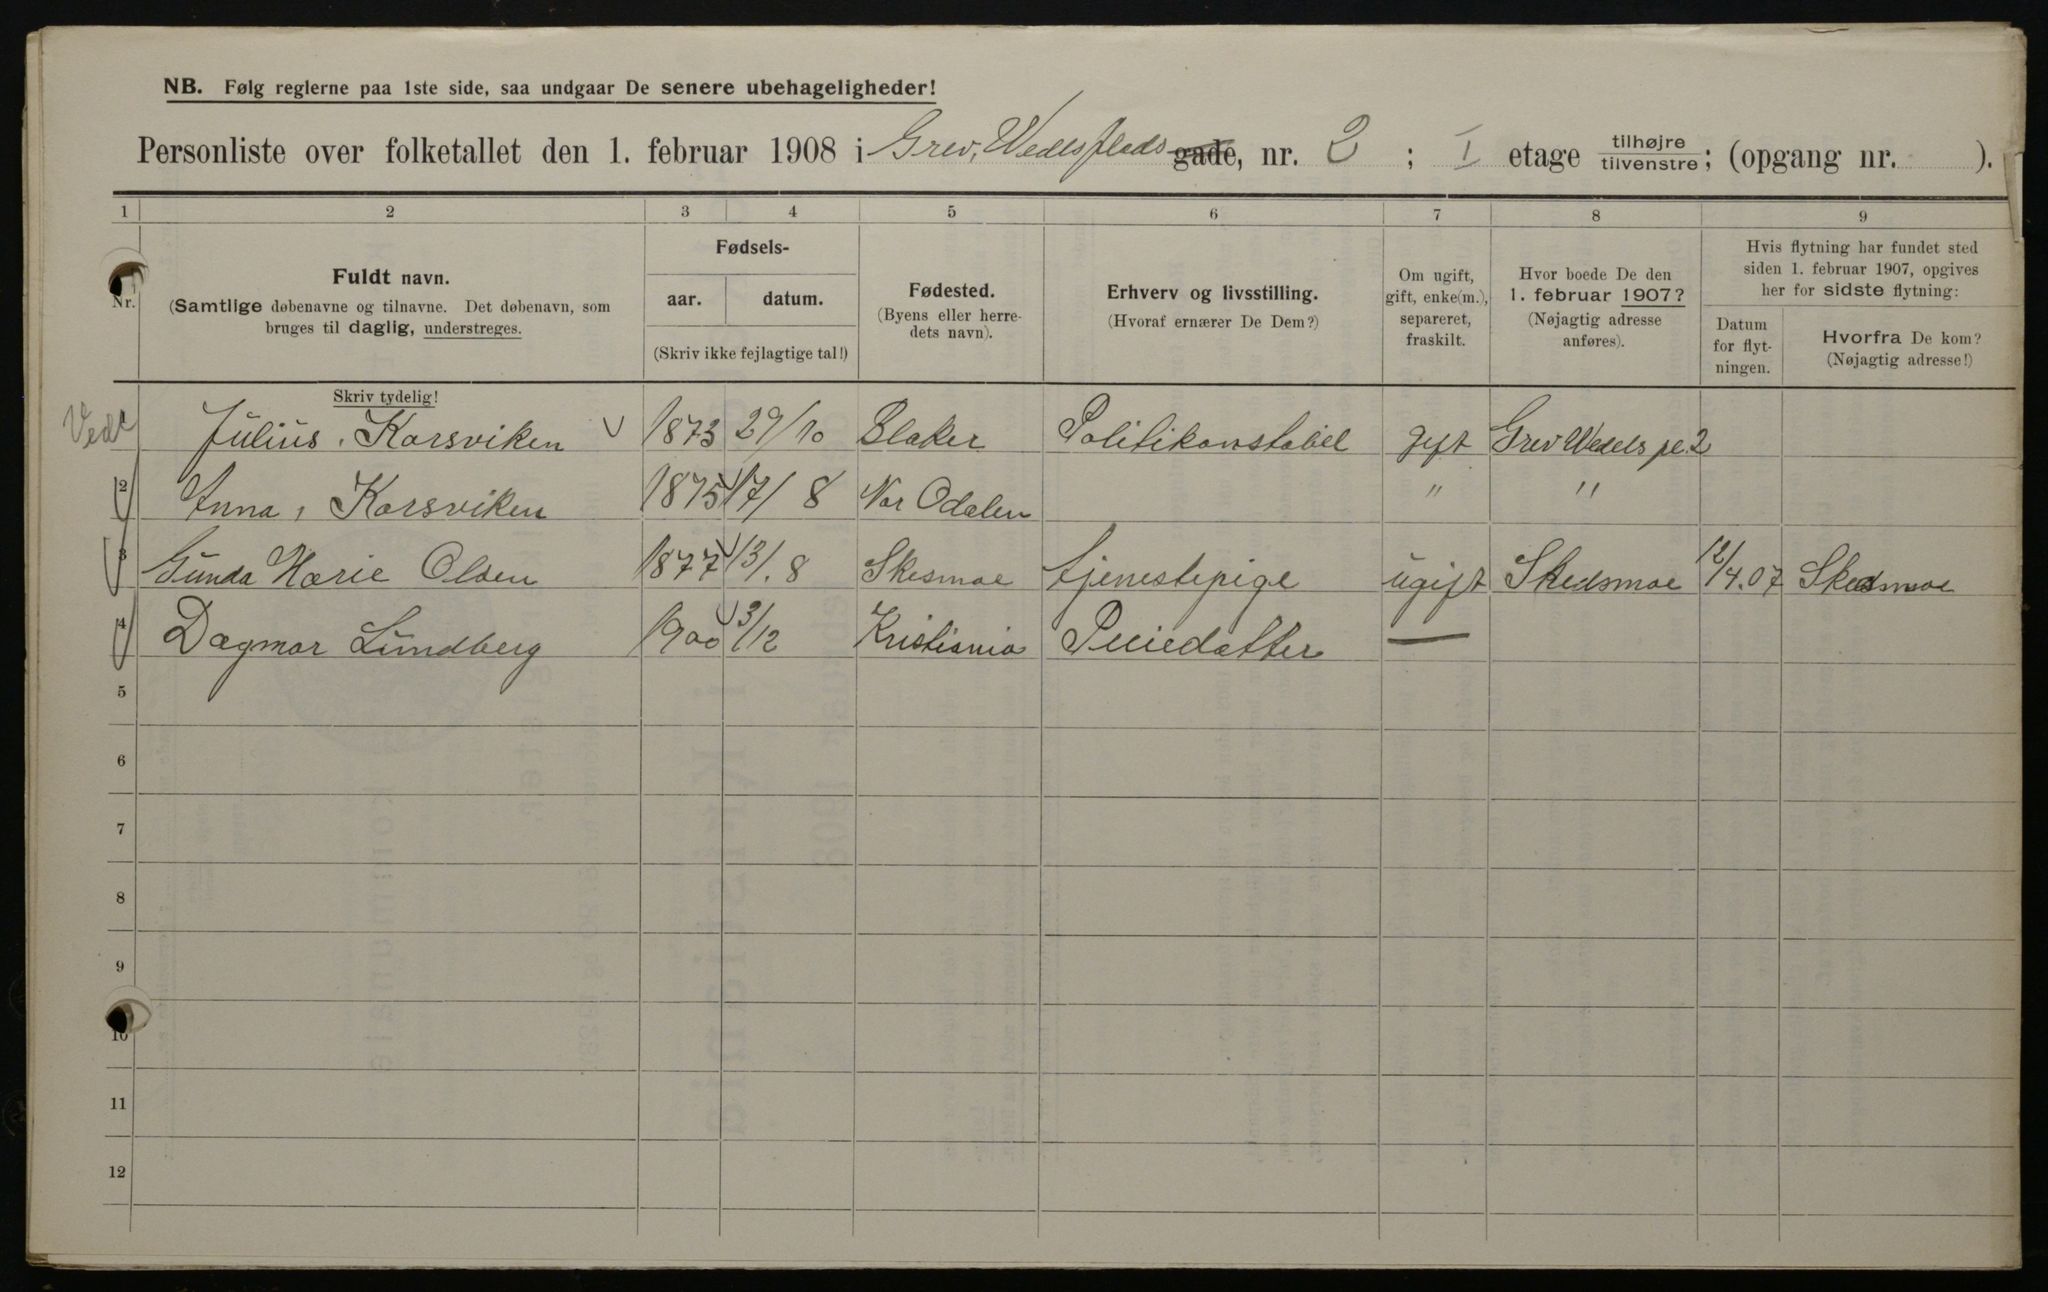 NB. Følg reglerne paa 1ste side, saa undgaar De senere ubehageligheder!
Personliste over folketallet den 1. februar 1908 i Grev, Wedelsplads gade, nr. 2 ; I etage tilhøjre tilvenstre ; (opgang nr. ).
1 2 3 4 5 6 7 8 9
Nr.
Fuldt navn.
(Samtlige døbenavne og tilnavne. Det døbenavn, som
bruges til daglig, understreges.
Skriv tydelig!
Fødsels-
aar. datum.
(Skriv ikke fejlagtige tal!)
Fødested.
(Byens eller herre-
dets navn).
Erhverv og livsstilling.
(Hvoraf ernærer De Dem?)
Om ugift,
gift, enke(m.),
separeret,
fraskilt.
Hvor boede De den
1. februar 1907?
(Nøjagtig adresse
anføres).
Hvis flytning har fundet sted
siden 1. februar 1907, opgives
her for sidste flytning:
Datum
for flyt-
ningen.
Hvorfra De kom?
(Nøjagtig adresse!)
Julius, Korsviken 1873 29/10 Blaker Politikonstabel gift Grev Wedels pl. 2
2 Anna, Korsviken 1875 17/8 Nor Odalen " "
3 Gunda Marie Olsen 1877 13/.8 Skesmoe tjenestepige ugift Skedsmoe 12/4.07 Skedsmoe
4 Dagmar Lundberg 1900 3/12 Kristiania Pleiedatter —
5
6
7
8
9
10
11
12